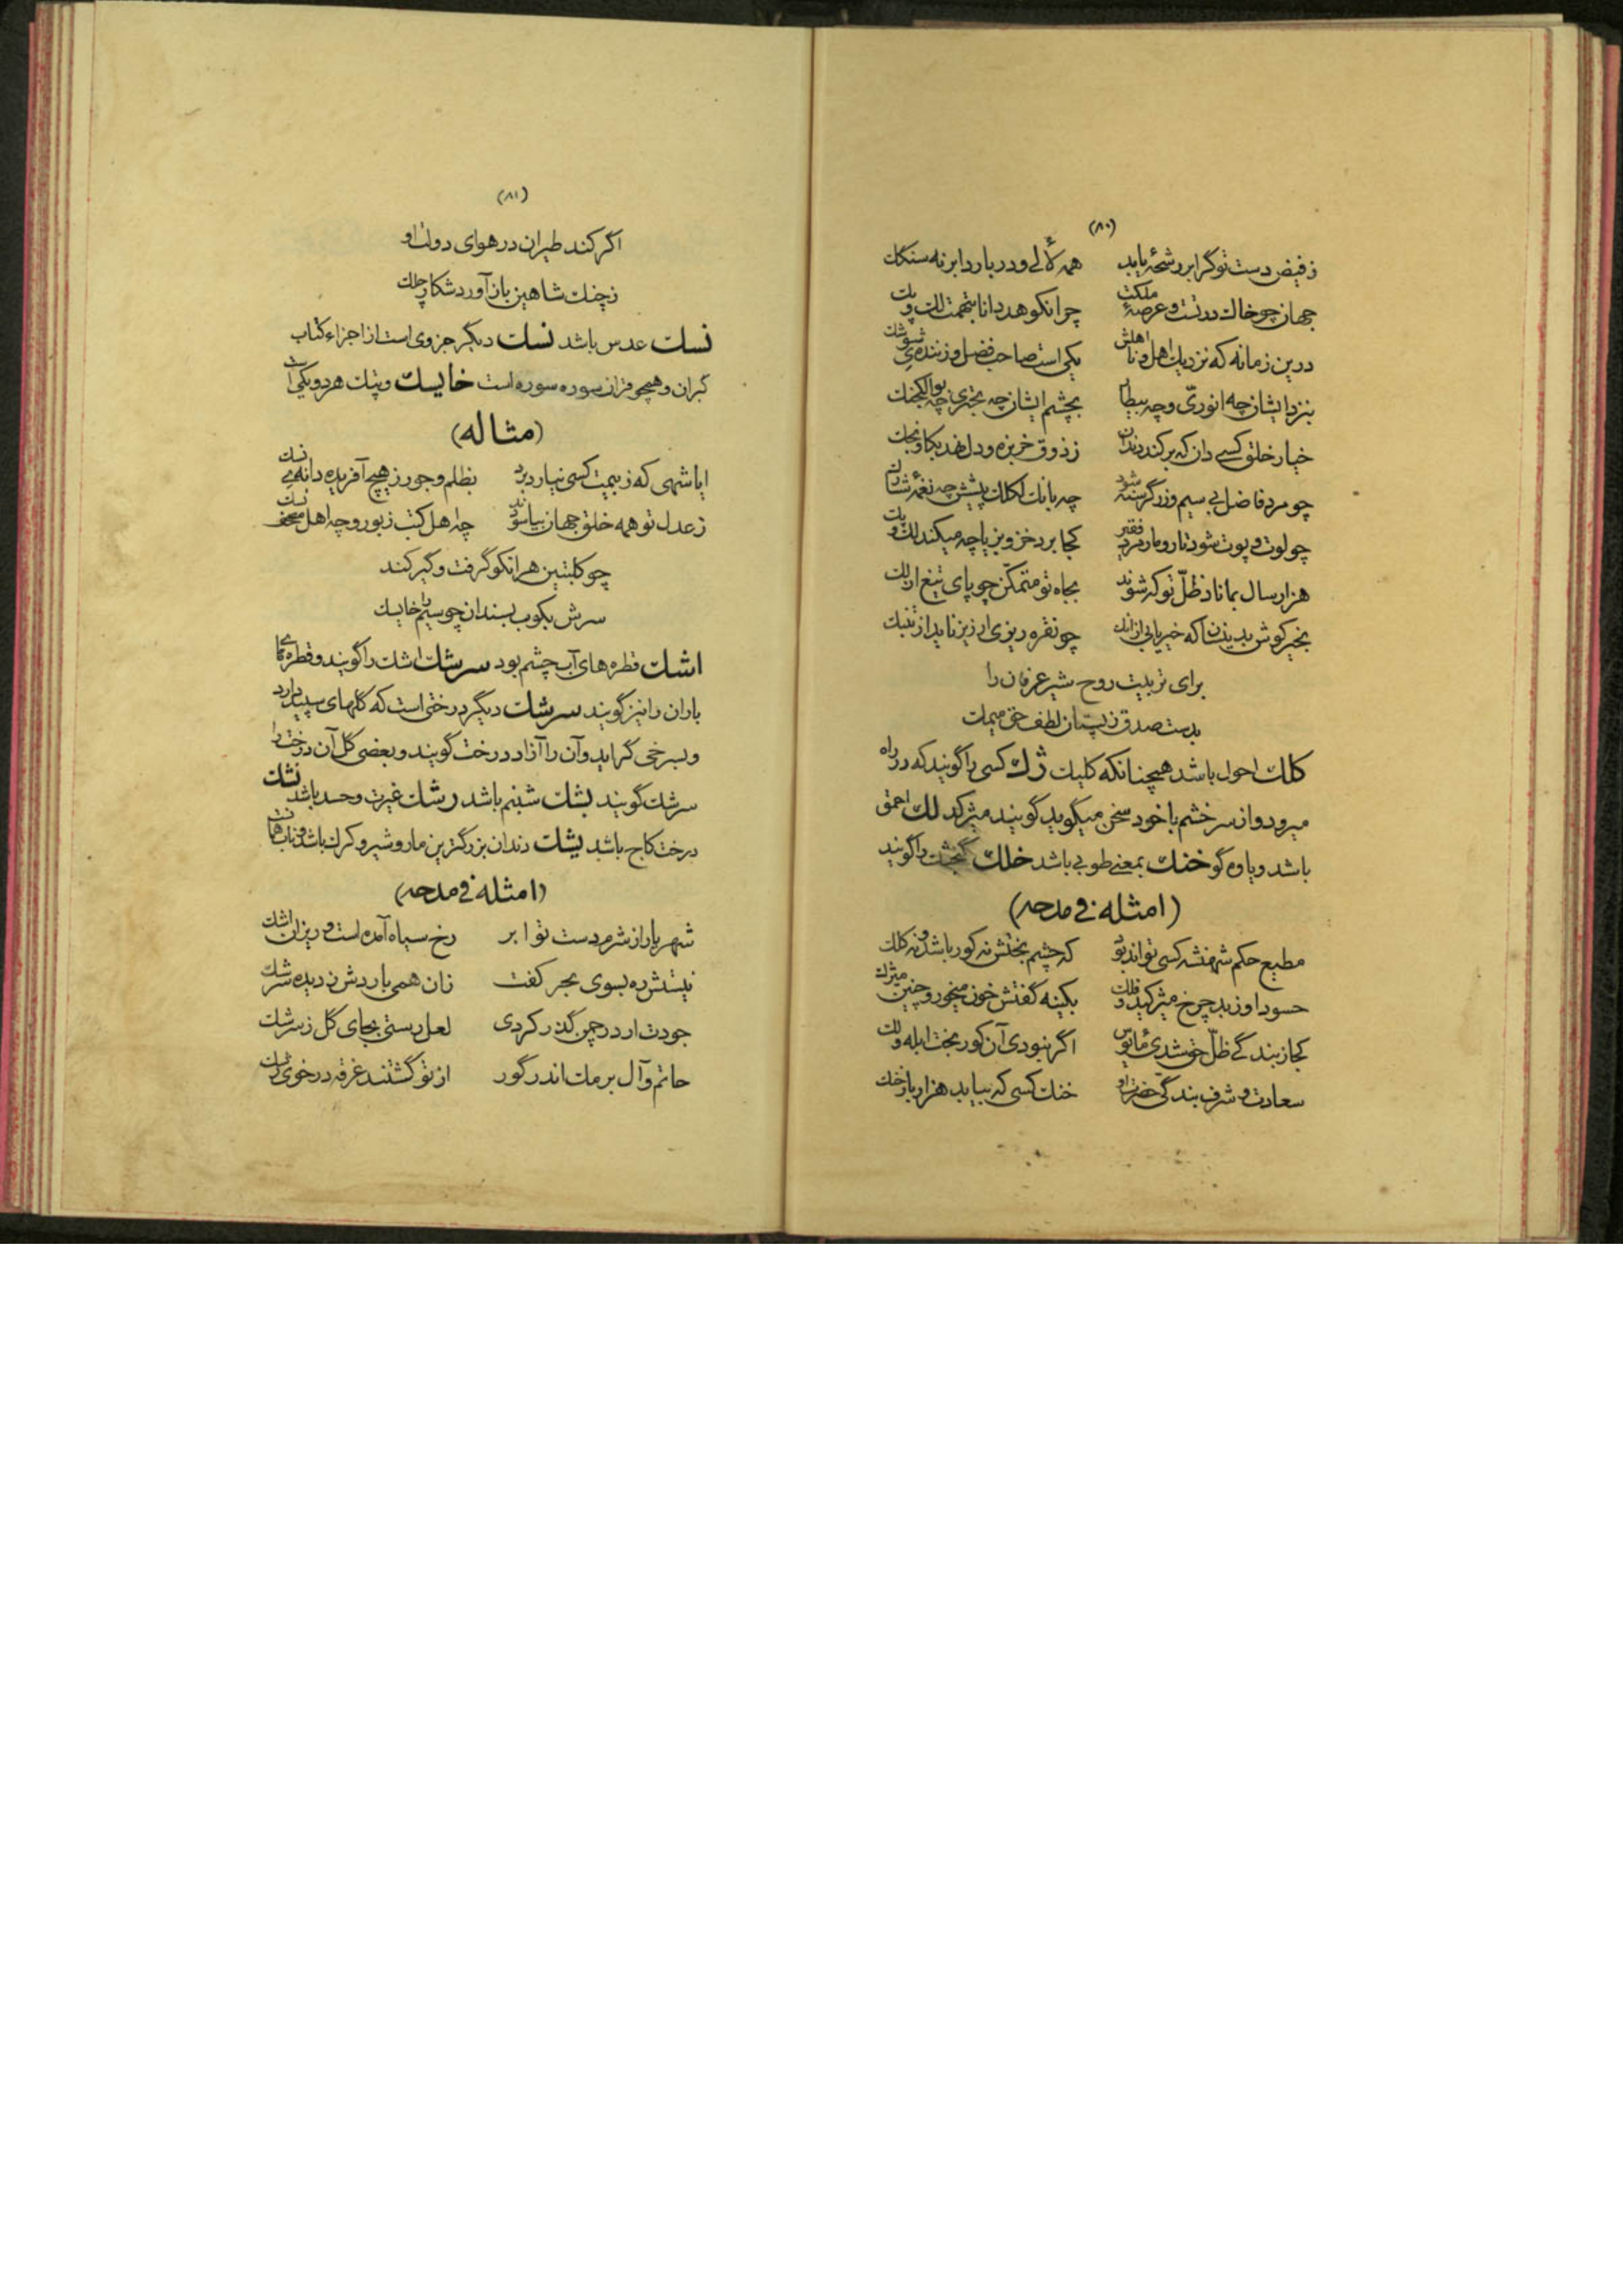 (٨٠)
ز فیض دست تو گر ابر رشحهٔ یابد همه لآلی و در بارد ابر نه سنکک
جهان چو خاک در تست و عرصهٔ ملکت چرا نکوهد دانا بتهمت لک و پک
درین زمانه که نزدیک اهل و نا اهلش یکی است صاحب فضل و زننده شوشک
بنزد ایشان چه انوری و چه بیطار بچشم ایشان چه بحتری چه
خیار خلق کسی دان که برکند دندان ز ذوق خربزه و دل نهد بکاونجک
چو مرد فاضل بی سیم و زر گرسنه شود چه بانک لکلک پیشش چه نغمهٔ شارک
چو لوت و پوت نشود تار و مار مرد فقیر کجا برد خز و بزیا چه میکند لک و پک
هزار سال بمانا د ظلّ تو که شوند بجاه تو متمکّن چو پای تیغ ارلک
بخیر کوش که خیر یابی از انک چو نقره ریزی ارزیز ناید از تنبک
برای تربیت روح شیر عرفان را
بدست صدق ز پستان لطف حق میمک
کلک احول باشد همچنانکه کلیک ژک کسی را گویند که در راه
میرود و از سر خشم با خود سخن میگوید گویند میژکد لک احمق
باشد و یاوه گو خنک بمعنی طوبی باشد خلک گنجشک را گویند
(امثله فی مدحه)
مطیع حکم شهنشه کسی تواند بود که چشم بختش نه کور باشد و نه کلک
حسود او ز بد چرخ میژکید و فلک بکینه گفتش خون میخور و چنین میژک
کجا ز بندگی ظلّ حق شدی مأیوس اگر نبودی آن کور بخت ابله و لک
سعادت و شرف بندگی حضرت او خنک کسی که بیابد هزار بار خنک
(٨١)
اگر کند طیران در هوای دولت او
ز چنک شاهین باز آورد شکار چلک
نسک عدس باشد نسک دیگر جزوی است از اجزاء کتاب
گبران و همچو قران سوره سوره است خایسک و پتک هر دو یکی است
(مثاله)
ایا شهی که ز بیمت کسی نیارد برد بظلم و جور ز هیچ آفریده دانهٔ نسک
ز عدل تو همه خلق جهان بیاسودند چه اهل کتب زبور و چه اهل مصحف نسک
چو کلبتین هر انکو گرفت و گیر کند
سرش بکوب بسندان چو سیم با خایسک
اشک قطره های آب چشم بود سرشک اشک را گویند و قطره های
باران را نیز گویند سرشک دیگر درختی است که گلهای سپید دارد
و بسرخی گراید و آن را آزاد درخت گویند و بعضی گل آن درخت را
سرشک گویند بشک شبنم باشد رشک غیرت و حسد باشد نشک
درخت کاج باشد یشک دندان بزرگترین مار و شیر و کرک باشد
(امثله فی مدحه)
شهریارا ز شرم دست تو ابر رخ سیاه آمده است و ریزان اشک
نیستش ره بسوی بحر کفت زان همی باردش ز دیده سرشک
جودت ار در چمن گذر کردی لعل رستی بجای گل ز سرشک
حاتم و آل برمک اندر گور از تو گشتند غرقه در خوی رشک